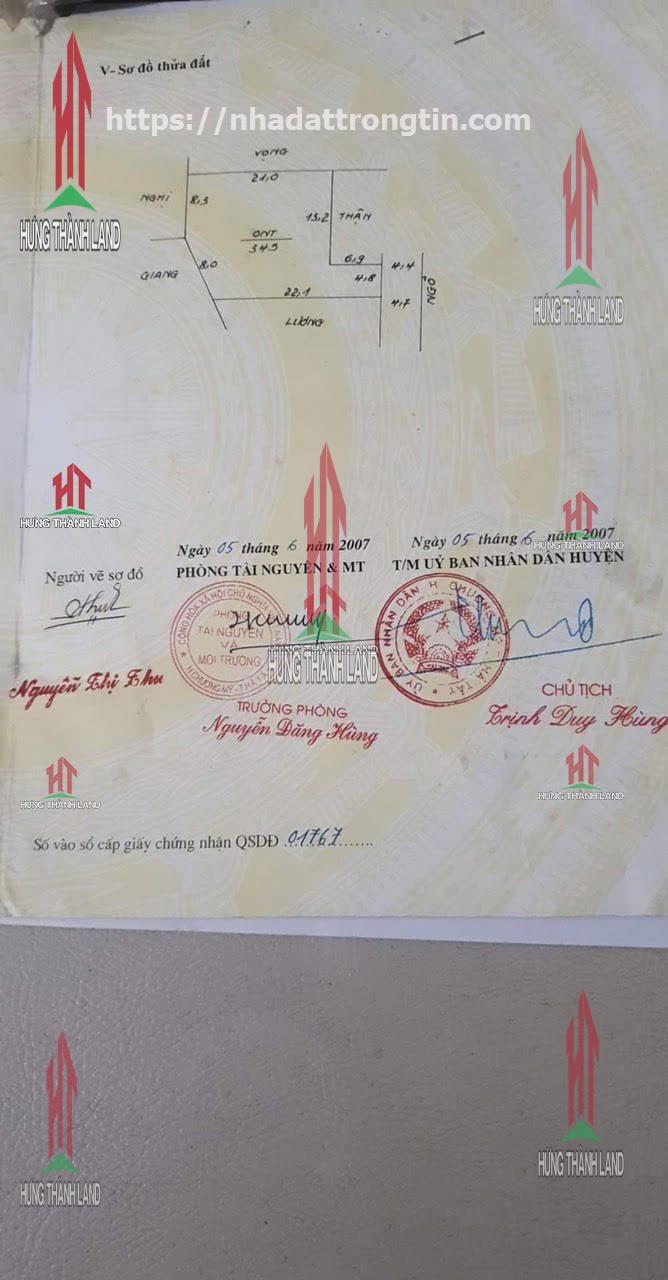 V- Sơ đồ thửa đất
https://nhadattrongtin.com
VỌNG
21,0
NGHỊ
8,3
13,2
THÂN
HƯNG THÀNH LAND
ONT
345
8,0
6,9
4,4
GIANG
4,8
NGÕ
HƯNG THÀNH LAND
22,1
4,7
LƯƠNG
HƯNG THÀNH LAND
Ngày 05 tháng 6 năm 2007
Ngày 05 tháng 6 năm 2007
HƯNG THÀNH LAND
Người vẽ sơ đồ
PHÒNG TÀI NGUYÊN & MT
T/M UỶ BAN NHÂN DÂN HUYỆN
CỘNG HÒA XÃ HỘI CHỦ NGHĨA
PHÒNG
TÀI NGUYÊN
VÀ
MÔI TRƯỜNG
H.CHƯƠNG MỸ
UỶ BAN NHÂN DÂN H. CHƯƠNG
HÀ TÂY
HƯNG THÀNH LAND
Nguyễn Thị Thu
TRƯỞNG PHÒNG
Nguyễn Đăng Hùng
CHỦ TỊCH
Trịnh Duy Hùng
HƯNG THÀNH LAND
HƯNG THÀNH LAND
Số vào sổ cấp giấy chứng nhận QSDĐ .01767.......
HƯNG THÀNH LAND
HƯNG THÀNH LAND